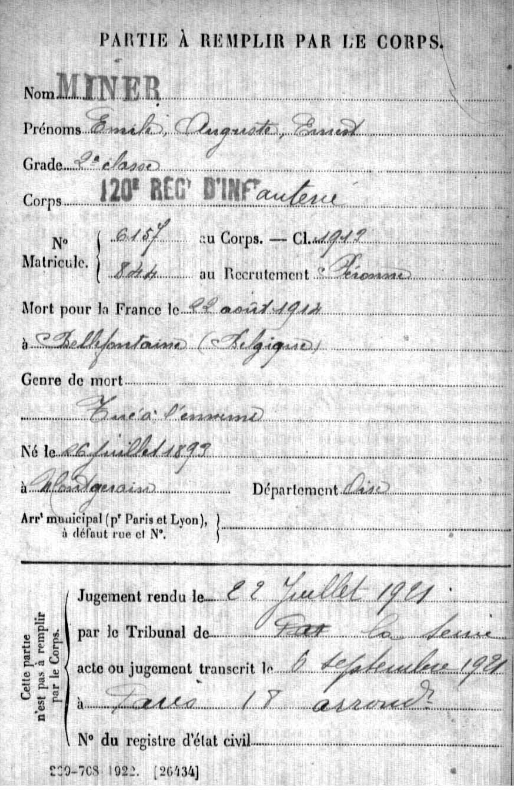 PARTIE À REMPLIR PAR LE CORPS.
Nom MINER
Prénoms Emile, Auguste, Ernest
Grade 2e classe
Corps 120e REGt D'INFanterie
No Matricule. { 6157 au Corps. — Cl. 1912
844 au Recrutement Péronne
Mort pour la France le 22 août 1914
à Bellefontaine (Belgique)
Genre de mort
Tué à l'ennemi
Né le 26 juillet 1892
à Montgerain Département Oise
Arrt municipal (pr Paris et Lyon),
à défaut rue et No.
Cette partie n'est pas à remplir par le Corps.
Jugement rendu le 22 Juillet 1921
par le Tribunal de la Seine
acte ou jugement transcrit le 6 septembre 1921
à Paris 18 arrondt
No du registre d'état civil
220-708 1922. [26434]